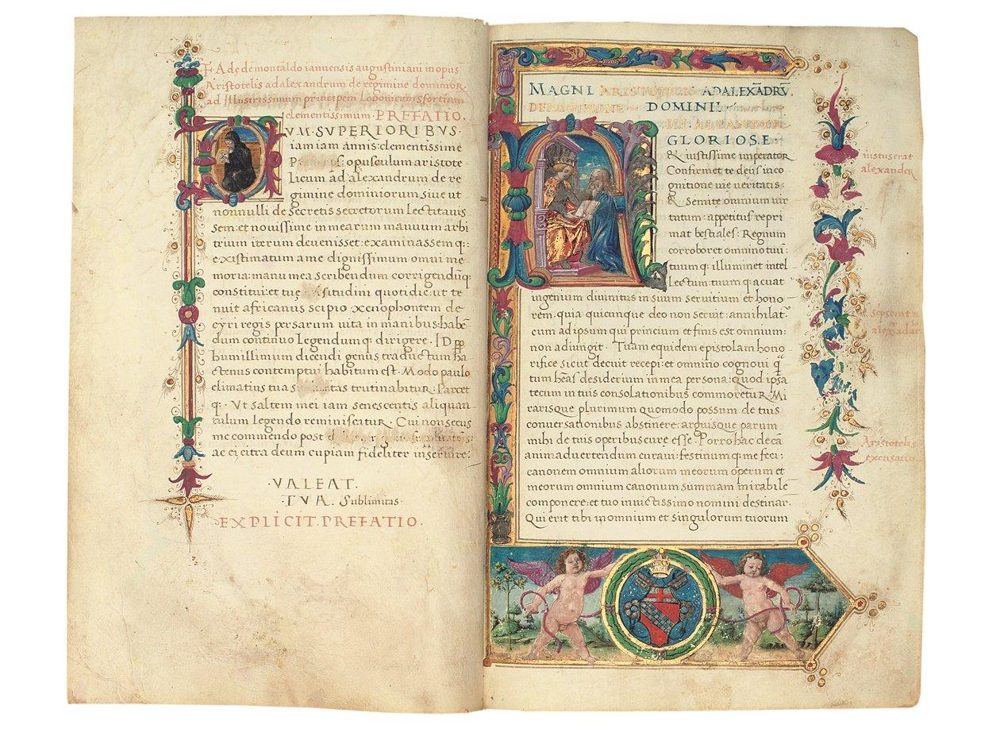 F. Ade demontaldo ianuensis augustiniani in opus
Aristotelis ad alexandrum de regimine dominior
ad Illustrissimum principem Lodovicum sfortium
clementissimum. PREFATIO.
CVM. SVPERIORIBVS.
iam iam annis: clementissime
opusculum aristote
licum ad alexandrum de re
gimine dominiorum siue ut
nonnulli de secretis secretorum Lectitauis
sem: et nouissime in mearum manuum arbi
trium iterum deuenisset: examinassem q:
existimatum a me dignissimum omni me
moria: manu mea scribendum corrigendūq;
constitui: et tuę itudini quotidie: ut te
nuit africanus scipio xenophontem de
cyri regis persarum uita in manibus habē
dum continuo Legendum q: dirigere.
humillimum dicendi genus traductum ha
ctenus contemptui habitum est. Modo paulo
elimatius tua tas trutinabitur. Parcet
q:. Ut saltem mei iam senescentis aliquan
tulum legendo reminiscitur. Cui non secus
me commendo post
ac ei citra deum cupiam fideliter inseruire.
.VALEAT.
.TVA. Sublimitas.
.EXPLICIT. PREFATIO.
MAGNI AD ALEXĀDRV̄.
DOMINI:
GLORIOSE.
& iustissime imperator
Confirmet te deus in co
gnitione uię ueritatis
& semite omnium uir
tutum: appetitus repri
mat bestiales: Regnum
corroboret omnino tui:
tum q: illuminet intel
Lectum: tuum q: acuat
ingenium diuinitus in suum seruitium et hono
rem. qua quicunque deo non seruit: annihilat
cum ad ipsum qui principium et finis est omnium:
non adiungit. Tuam equidem epistolam hono
rifice sicut decuit recepi: et omnino cognoui q̄
tum heas desiderium in mea persona: quod ipsa
tecum in tuis consolationibus commoretur. Mi
rarisque plurimum quomodo possum de tuis
conuersationibus abstinere: arguisque parum
mihi de tuis operibus cure esse. Porro hac de cā
animaduertendum curaui: festinum q: me feci:
canonem omnium aliorum meorum operum et
meorum omnium canonum summam mirabile
componere: et tuo inuictissimo nomini destinar
Qui erit tibi in omnium et singulorum tuorum
iustus erat
alexander
Aristotelis
excusatio